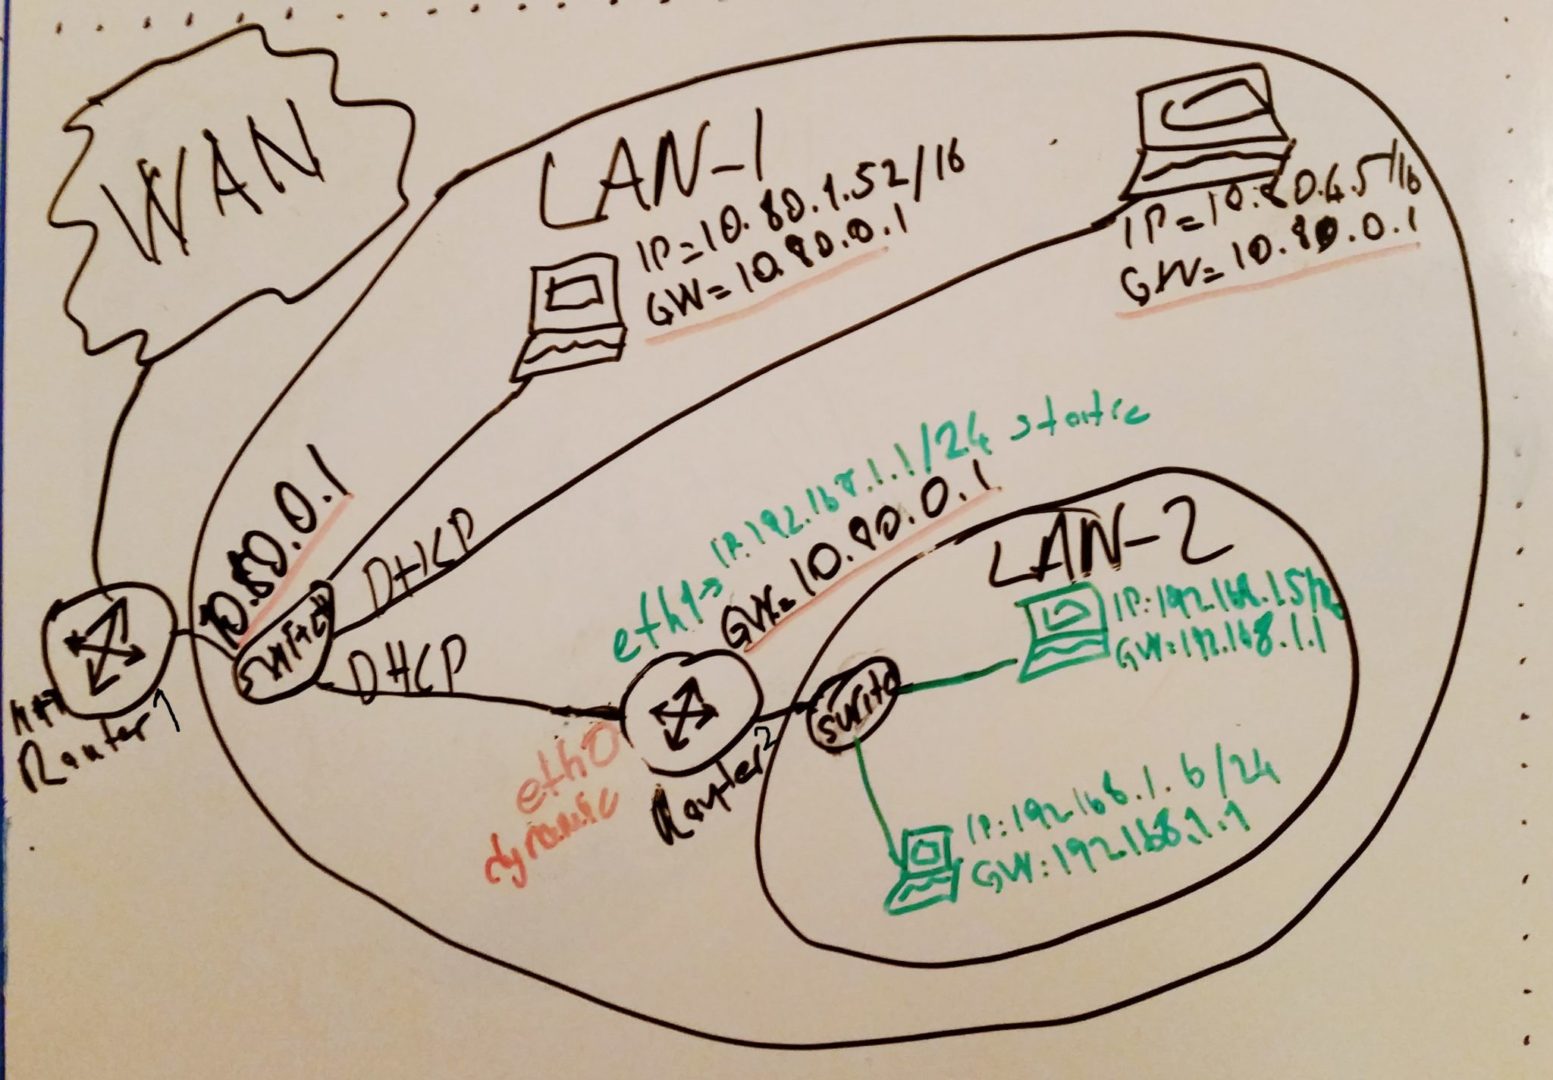 WAN
LAN-1
IP=10.80.1.52/16
GW=10.80.0.1
IP=10.80.4.5/16
GW=10.80.0.1
10.80.0.1
switch
DHCP
DHCP
Router 1
eth1 => IP:192.168.1.1/24 static
GW=10.80.0.1
eth0
dynamic
Router 2
LAN-2
switc
IP:192.168.1.5/24
GW:192.168.1.1
IP:192.168.1.6/24
GW:192.168.1.1